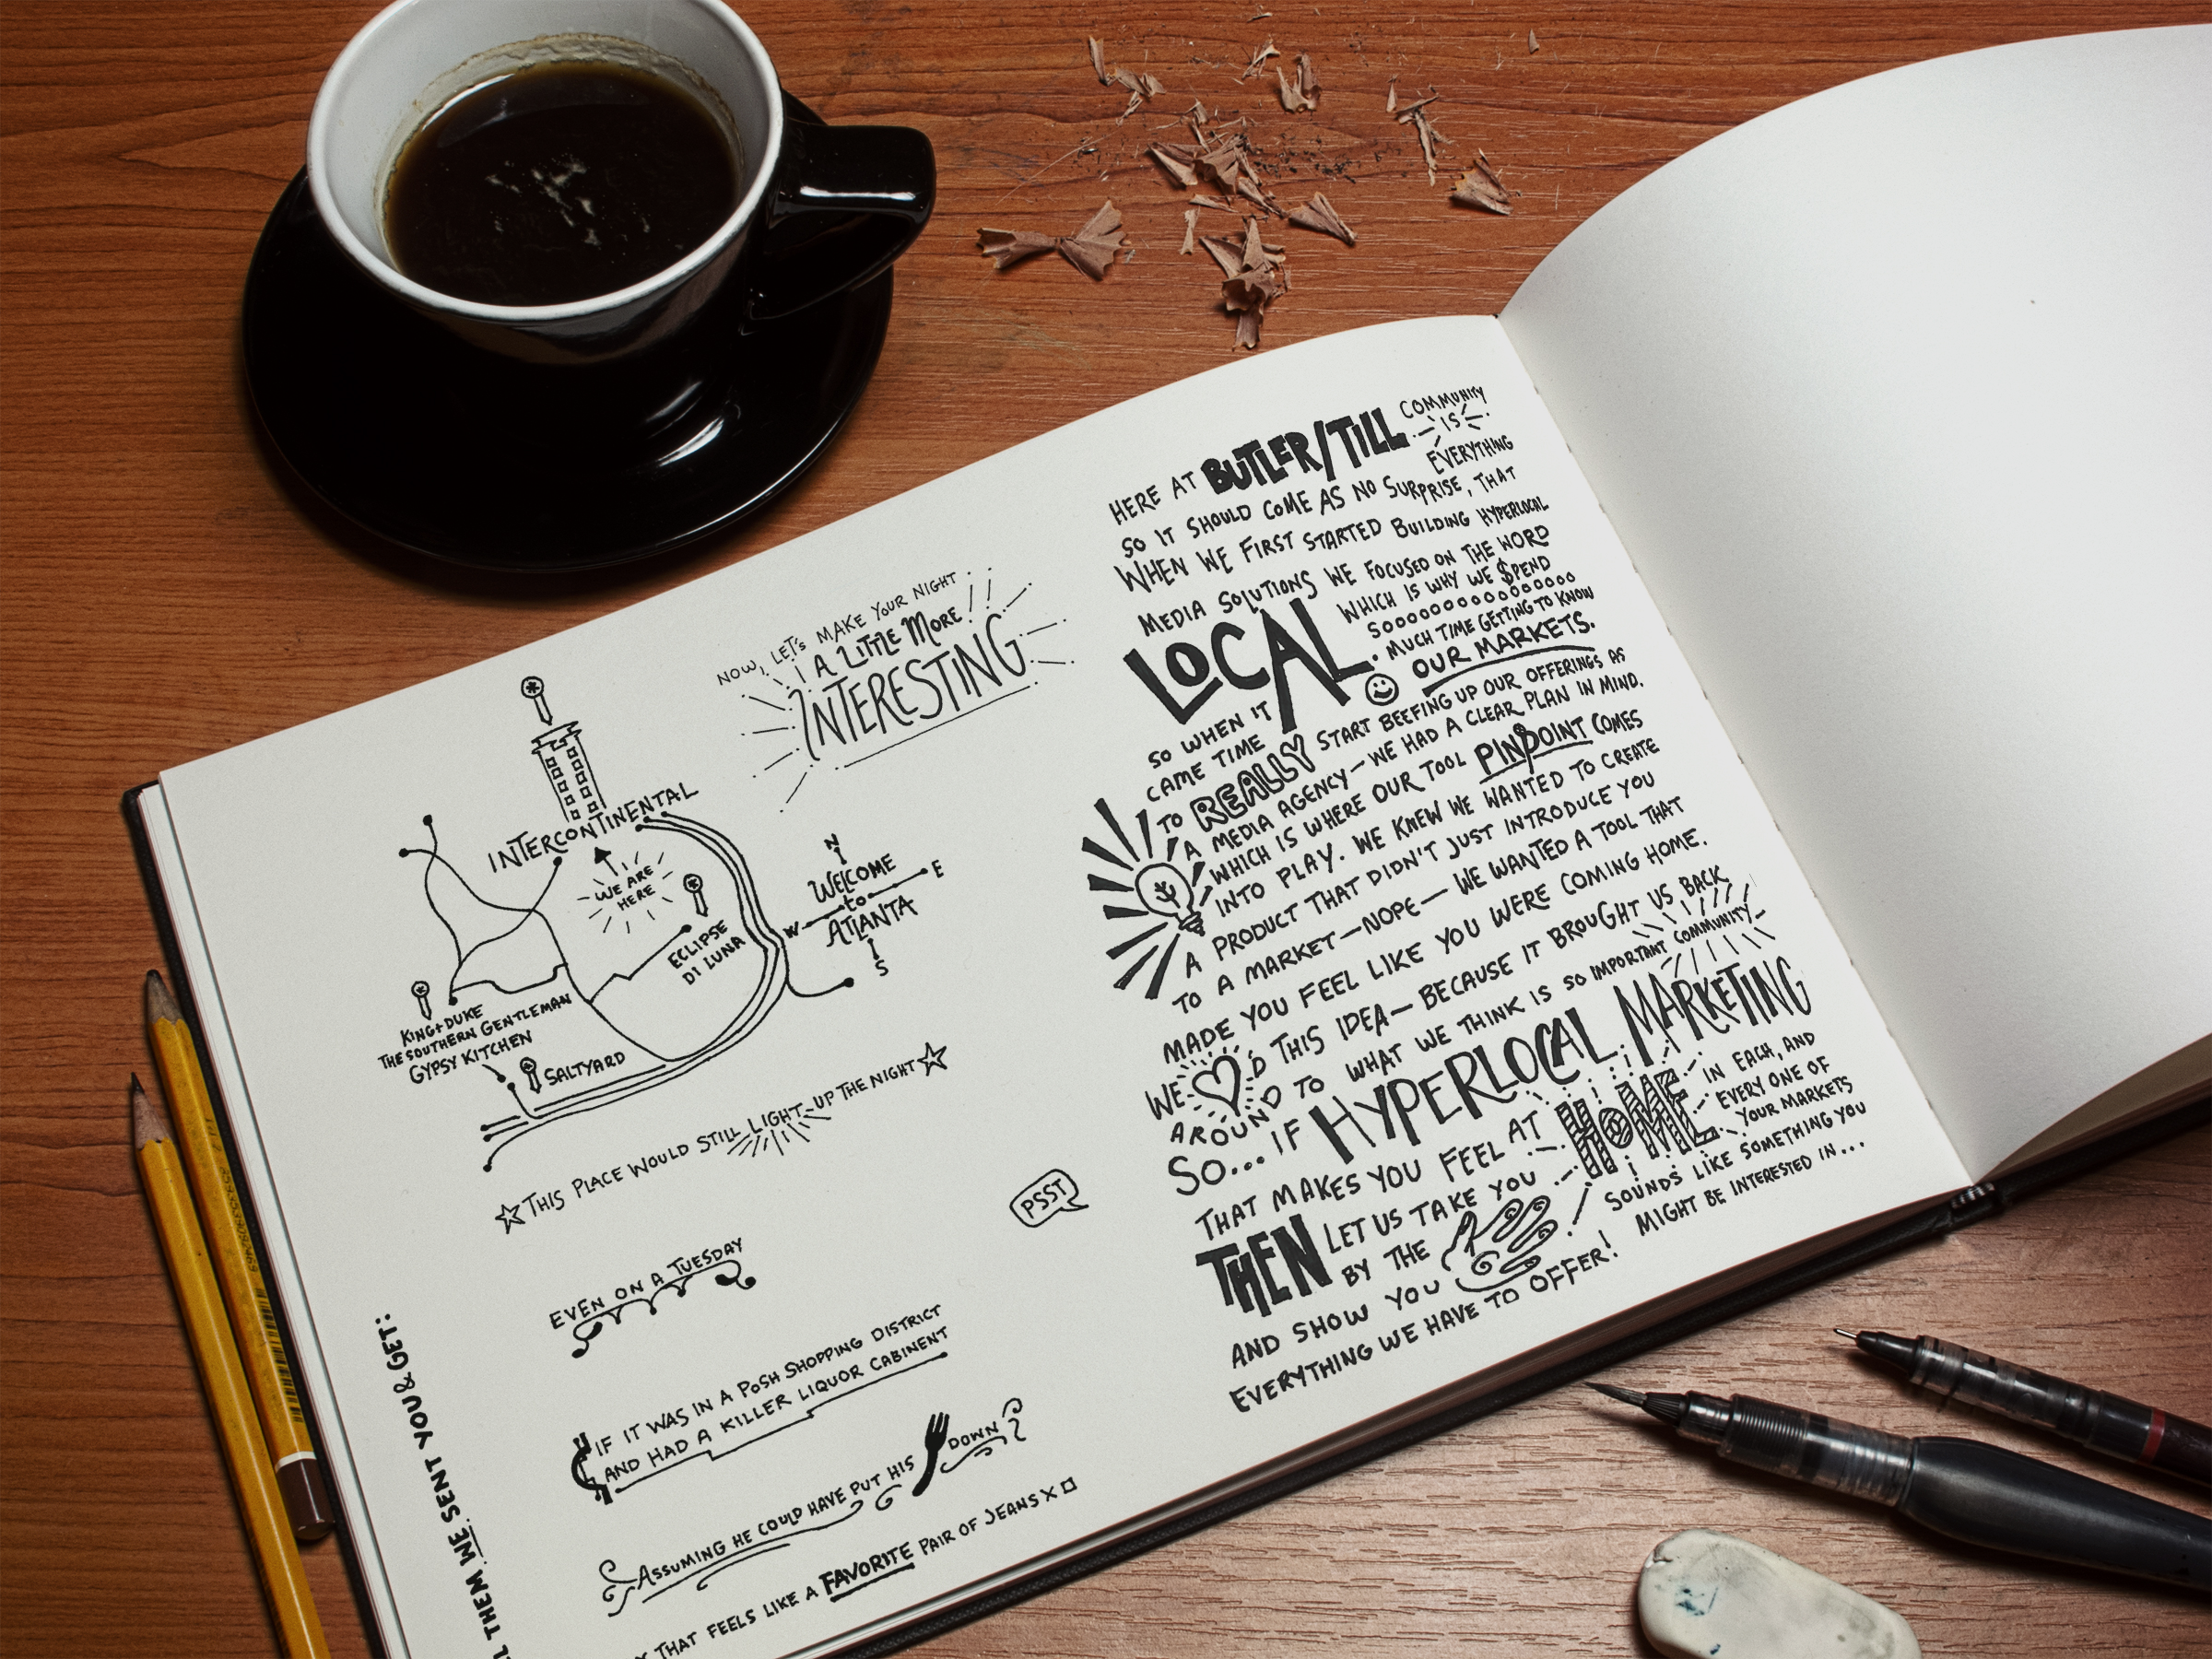 NOW, LET'S MAKE YOUR NIGHT
A LITTLE MORE!
INTERESTING
INTERCONTINENTAL
WE ARE
HERE
ECLIPSE
DI LUNA
N
WELCOME
E
to
W
ATLANTA
S
KING+DUKE
THE SOUTHERN GENTLEMAN
GYPSY KITCHEN
SALTYARD
THIS PLACE WOULD STILL LIGHT-UP THE NIGHT
EVEN ON A TUESDAY
IF IT WAS IN A POSH SHOPPING DISTRICT
AND HAD A KILLER LIQUOR CABINENT
ASSUMING HE COULD HAVE PUT HIS DOWN
THAT FEELS LIKE A FAVORITE PAIR OF JEANS X
THEM WE SENT YOU & GET:
PSST
HERE AT BUTLER/TILL COMMUNITY
IS
EVERYTHING
SO IT SHOULD COME AS NO SURPRISE, THAT
WHEN WE FIRST STARTED BUILDING HYPERLOCAL
MEDIA SOLUTIONS WE FOCUSED ON THE WORD
LOCAL.
WHICH IS WHY WE $PEND
SOOOOOOOOOOOOOO
MUCH TIME GETTING TO KNOW
OUR MARKETS.
SO WHEN IT
CAME TIME
TO REALLY START BEEFING UP OUR OFFERINGS AS
A MEDIA AGENCY—WE HAD A CLEAR PLAN IN MIND.
WHICH IS WHERE OUR TOOL PINPOINT COMES
INTO PLAY. WE KNEW WE WANTED TO CREATE
A PRODUCT THAT DIDN'T JUST INTRODUCE YOU
TO A MARKET—NOPE—WE WANTED A TOOL THAT
MADE YOU FEEL LIKE YOU WERE COMING HOME.
WE ♡'D THIS IDEA—BECAUSE IT BROUGHT US BACK
AROUND TO WHAT WE THINK IS SO IMPORTANT COMMUNITY
SO... IF HYPERLOCAL MARKETING
THAT MAKES YOU FEEL AT HOME IN EACH, AND
EVERY ONE OF
YOUR MARKETS
SOUNDS LIKE SOMETHING YOU
MIGHT BE INTERESTED IN...
THEN LET US TAKE YOU
BY THE
AND SHOW YOU
EVERYTHING WE HAVE TO OFFER!